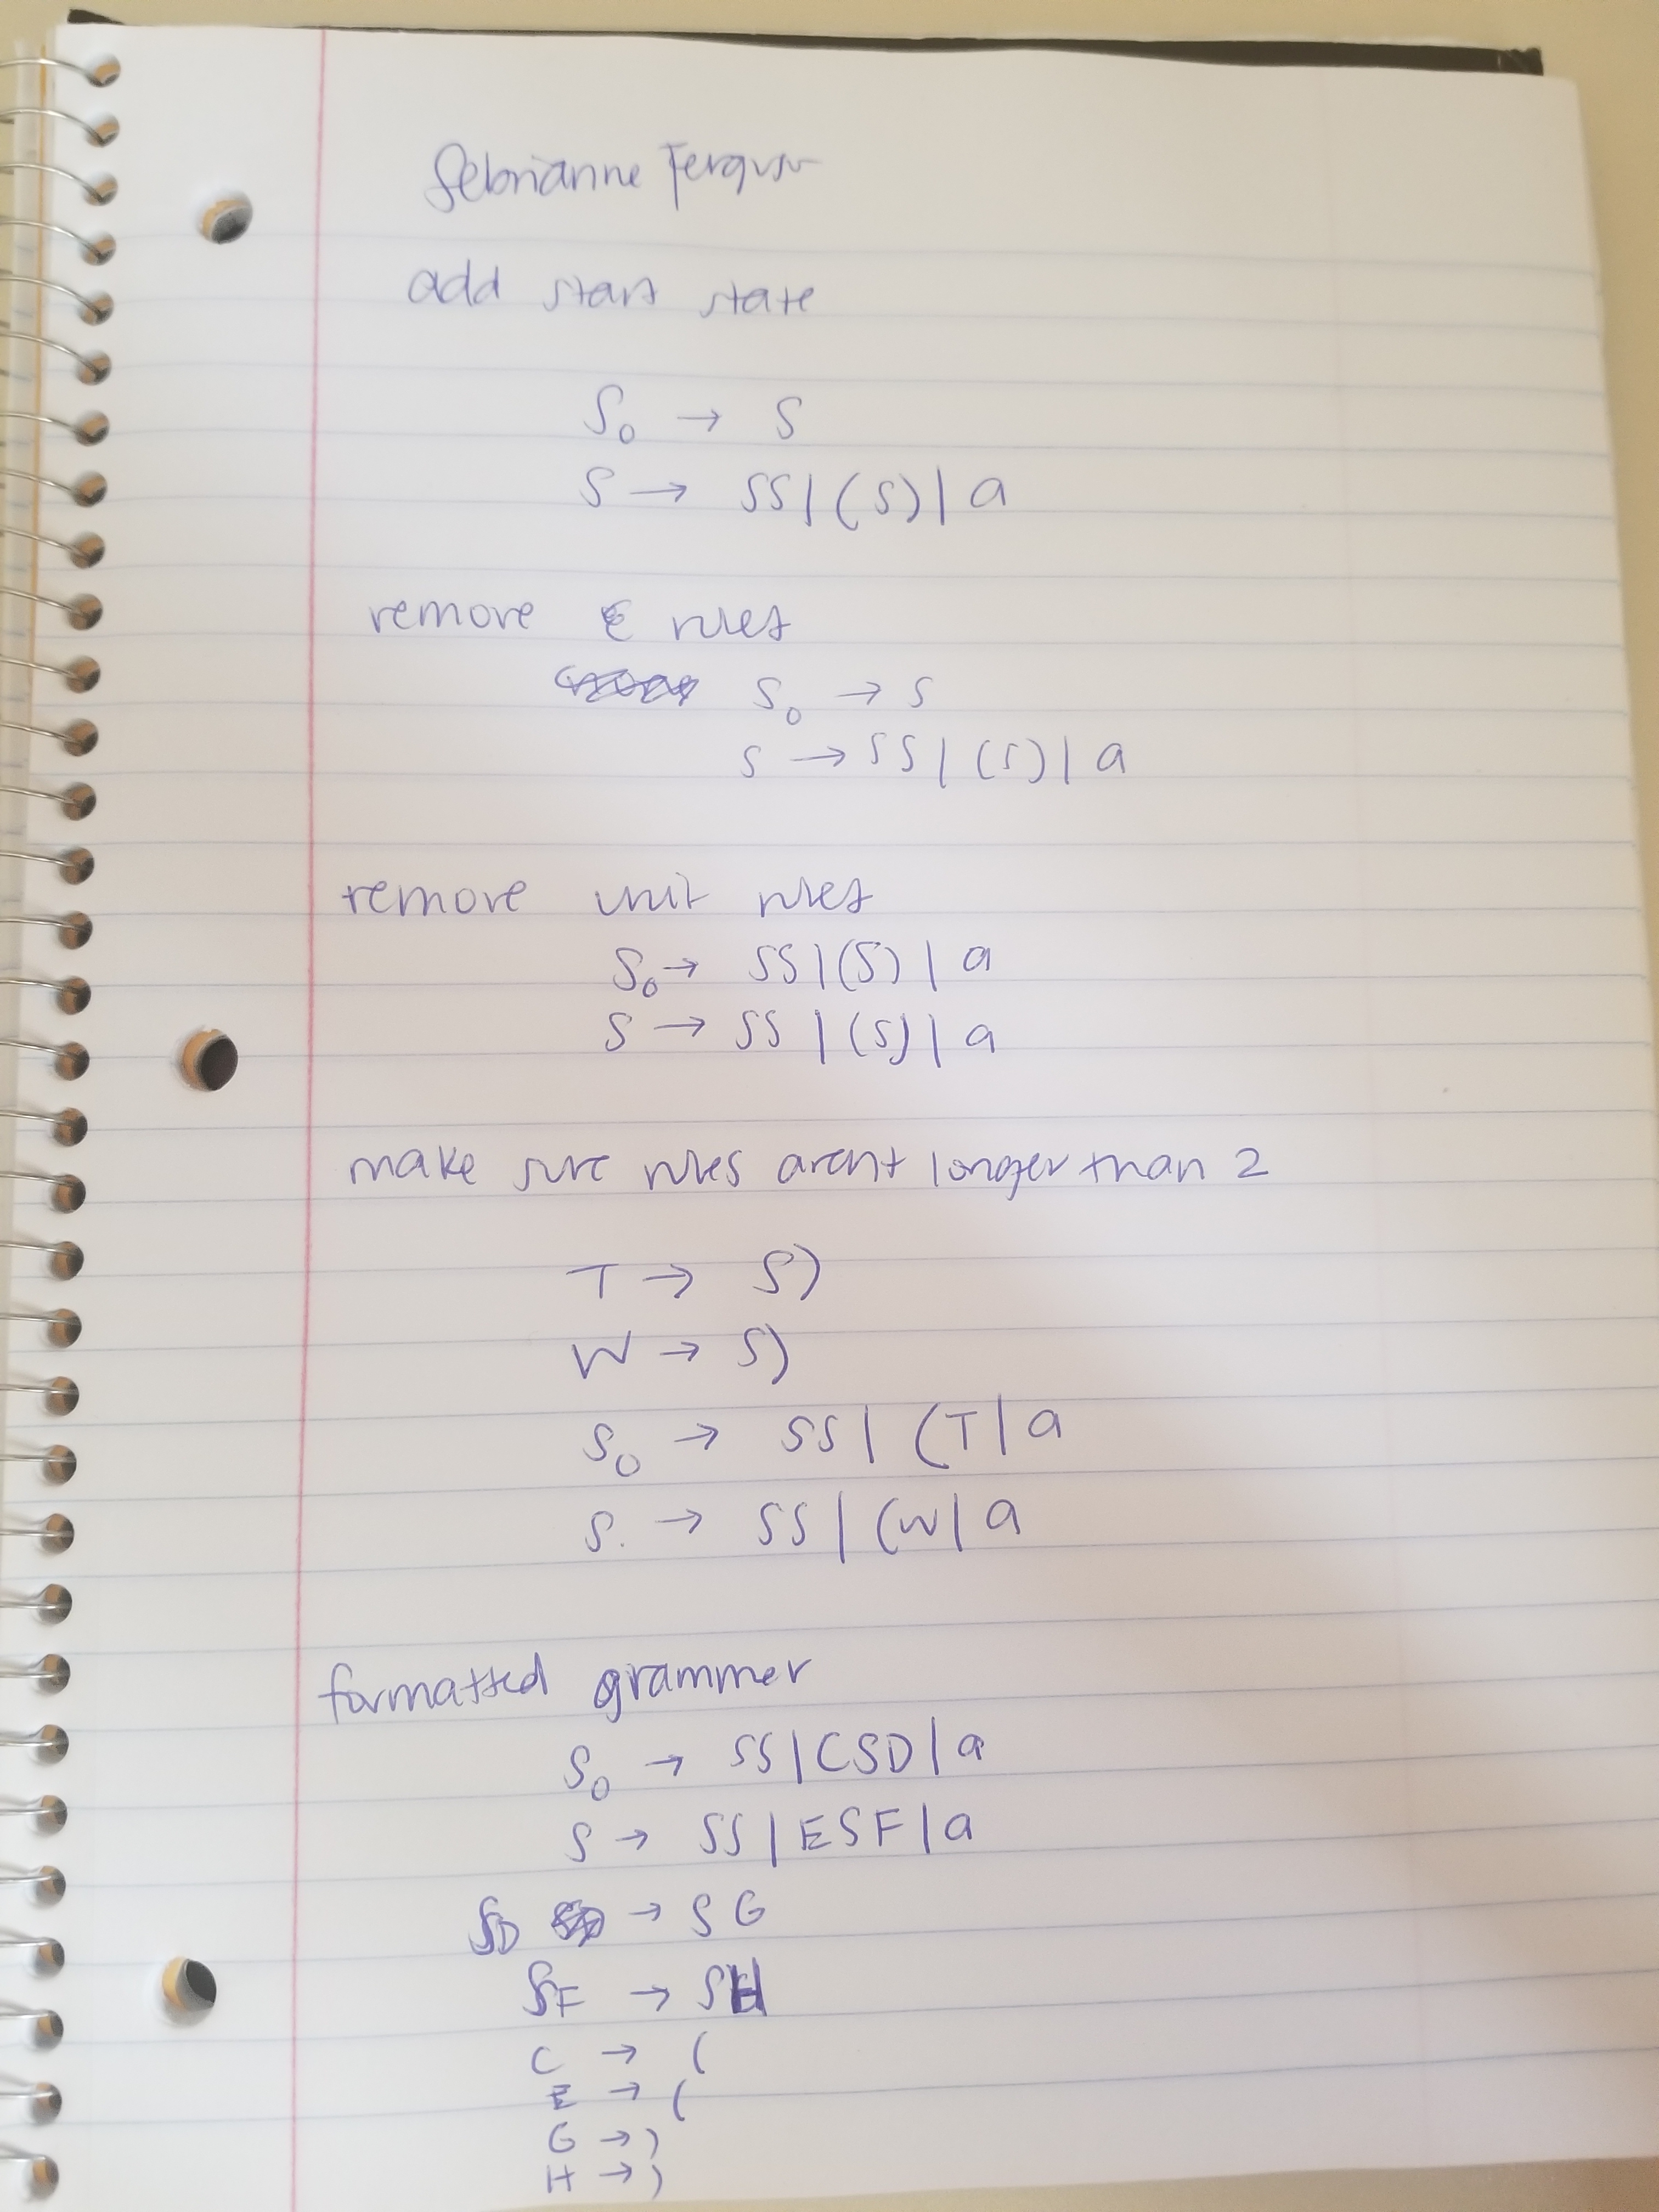 Febrianne Ferguson
add start state
S₀ → S
S → SS | (S) | a
remove ε rules
S₀ → S
S → SS | (S) | a
remove unit rules
S₀ → SS | (S) | a
S → SS | (S) | a
make sure rules arent longer than 2
T → S)
W → S)
S₀ → SS | (T | a
S. → SS | (W | a
formatted grammer
S₀ → SS | CSD | a
S → SS | ESF | a
SD → SG
SF → SH
C → (
E → (
G → )
H → )